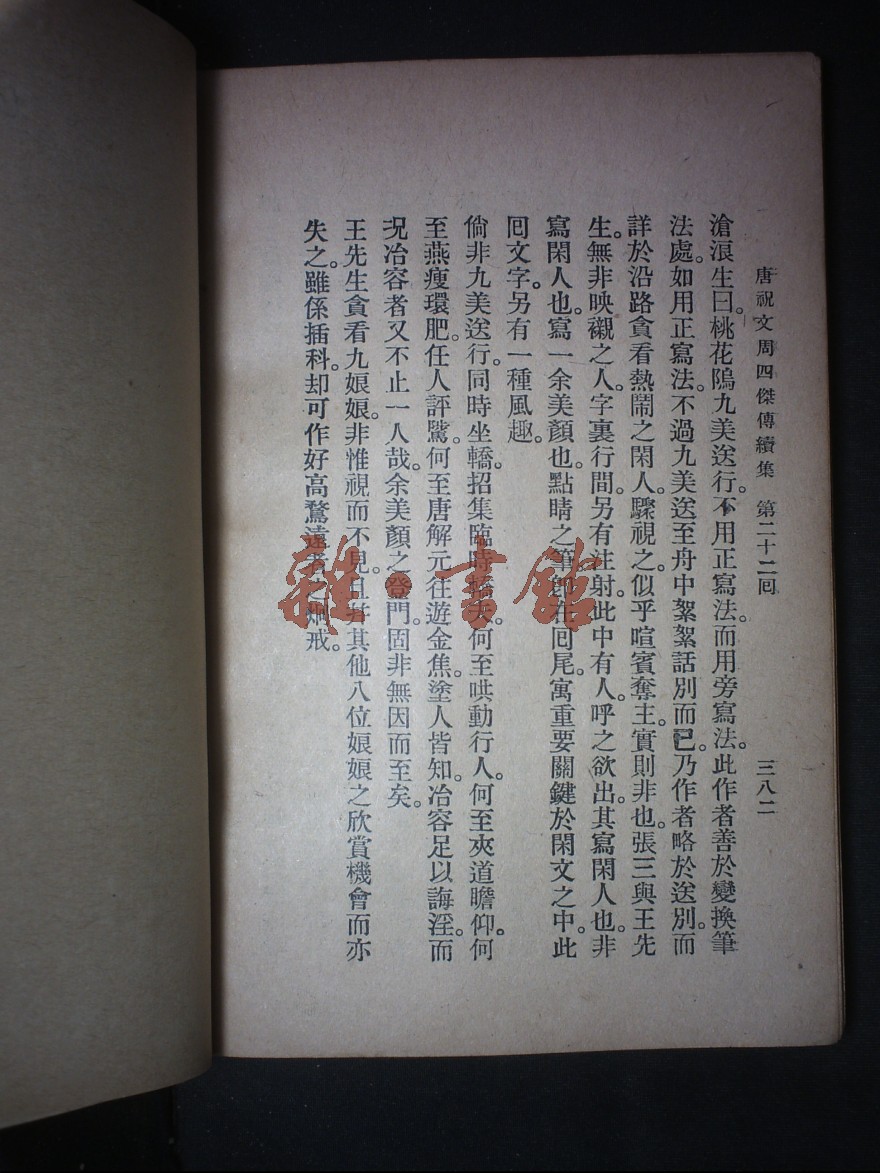 唐祝文周四傑傳續集 第二十二囘 三八二
滄浪生曰。桃花隝九美送行。不用正寫法。而用旁寫法。此作者善於變換筆
法處。如用正寫法。不過九美送至舟中絮絮話別而已。乃作者略於送別。而
詳於沿路貪看熱鬧之閑人。驟視之。似乎喧賓奪主。實則非也。張三與王先
生。無非映襯之人。字裏行間。另有注射。此中有人。呼之欲出。其寫閑人也。非
寫閑人也。寫一余美顏也。點睛之筆。卽在囘尾。寓重要關鍵於閑文之中。此
囘文字。另有一種風趣。
倘非九美送行。同時坐轎。招集臨時轎夫。何至哄動行人。何至夾道瞻仰。何
至燕瘦環肥。任人評騭。何至唐解元往遊金焦。塗人皆知。冶容足以誨淫。而
况冶容者又不止一人哉。余美顏之登門。固非無因而至矣。
王先生貪看九娘娘。非惟視而不見。且幷其他八位娘娘之欣賞機會而亦
失之。雖係插科。却可作好高騖遠者之炯戒。
雜·書館